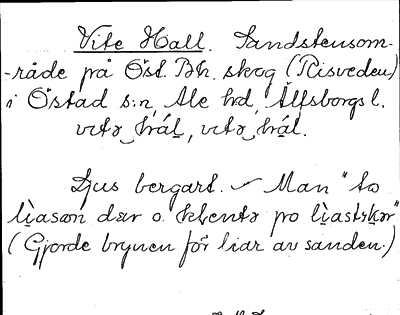 Vite Hall. Sandstensom-
-råde på Öst. Bh. skog (Risveden)
i Östad s:n, Ale hd, Älfsborgs l.
vitə hál, vitə hál.
Ljus bergart. Man "to
lìasən där o. klentə po lìastskər"
(Gjorde brynen för liar av sanden.)